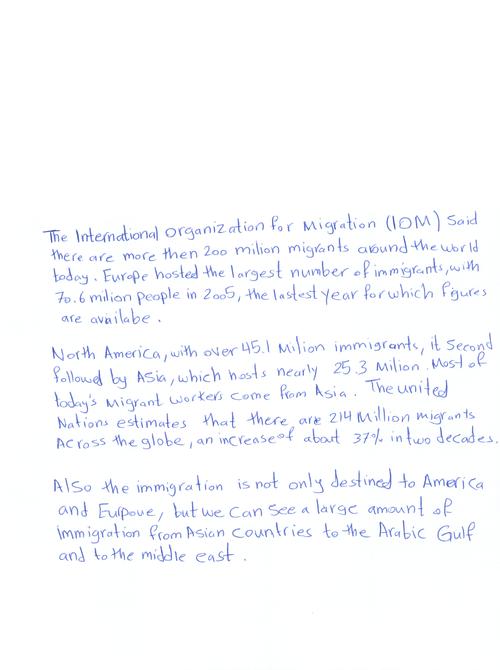 The International organization for Migration (IOM) Said
there are more then 200 milion migrants around the world
today. Europe hosted the largest number of immigrants, with
70.6 milion people in 2005, the lastest year for which figures
are availabe.
North America, with over 45.1 Milion immigrants, it Second
followed by ASia, which hosts nearly 25.3 Milion. Most of
today's Migrant workers come from Asia. The united
Nations estimates that there are 214 Million migrants
Across the globe, an increase of about 37% in two decades.
Also the immigration is not only destined to America
and Eurpoue, but we can see a large amount of
immigration from Asian countries to the Arabic Gulf
and to the middle east.